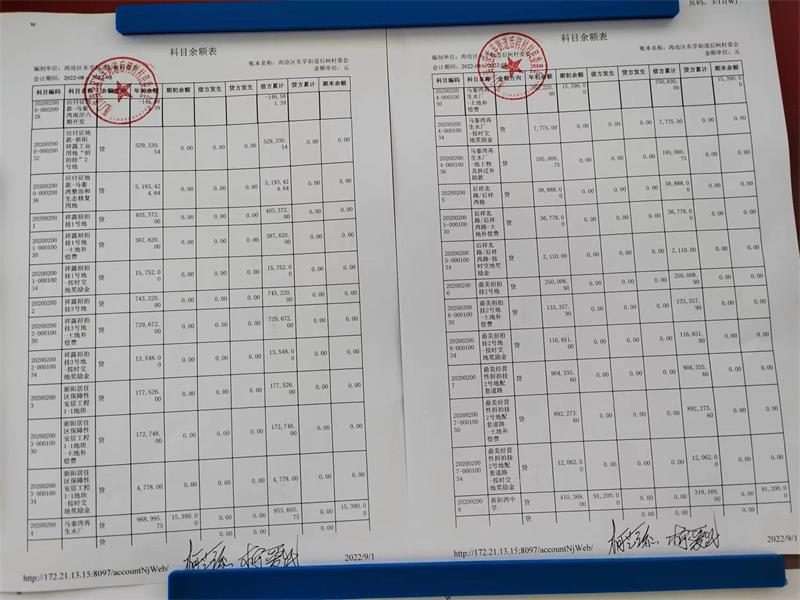 W
科目余额表
编制单位:海沧区东孚街道后柯村村委会
账本名称:海沧区东孚街道后柯村委会
会计期间:2022-08
金额单位:元
科目编码 科目名称 方向 年初余额 期初余额 借方发生 贷方发生 借方累计 贷方累计 期末余额
20200200-00020028 应付征地款-马銮湾南岸六期开发 -146,581.39 0.00 0.00 -146,581.39 0.00
20200200-00020032 应付征地款-新阳祥露工业用地"招拍挂"2号地 贷 529,330.54 0.00 0.00 0.00 529,330.54 0.00 0.00
20200200-00020036 应付征地款-马銮湾整治和生态修复用地 贷 5,193,424.64 0.00 0.00 0.00 5,193,424.64 0.00 0.00
20200201 祥露招拍挂1号地 贷 403,372.00 0.00 0.00 0.00 403,372.00 0.00 0.00
20200201-00010030 祥露招拍挂1号地-土地补偿费 贷 387,620.00 0.00 0.00 0.00 387,620.00 0.00 0.00
20200201-00010034 祥露招拍挂1号地-按时交地奖励金 贷 15,752.00 0.00 0.00 0.00 15,752.00 0.00 0.00
20200202 祥露招拍挂3号地 贷 743,220.00 0.00 0.00 0.00 743,220.00 0.00 0.00
20200202-00010030 祥露招拍挂3号地-土地补偿费 贷 729,672.00 0.00 0.00 0.00 729,672.00 0.00 0.00
20200202-00010034 祥露招拍挂3号地-按时交地奖励金 贷 13,548.00 0.00 0.00 0.00 13,548.00 0.00 0.00
20200203 新阳居住区保障性安居工程1-1地块 贷 177,526.00 0.00 0.00 0.00 177,526.00 0.00 0.00
20200203-00010030 新阳居住区保障性安居工程1-1地块-土地补偿费 贷 172,748.00 0.00 0.00 0.00 172,748.00 0.00 0.00
20200203-00010034 新阳居住区保障性安居工程1-1地块-按时交地奖励金 贷 4,778.00 0.00 0.00 0.00 4,778.00 0.00 0.00
20200204 马銮湾再生水厂 贷 968,995.75 15,390.00 0.00 0.00 953,605.75 0.00 15,390.00
http://172.21.13.15:8097/accountNjWeb/
2022/9/1
页码:3/11(W)
科目余额表
编制单位:海沧区东孚街道后柯村村委会
账本名称:海沧区东孚街道后柯村委会
会计期间:2022-08
金额单位:元
科目编码 科目名称 方向 年初余额 期初余额 借方发生 贷方发生 借方累计 贷方累计 期末余额
20200204-00010030 马銮湾再生水厂-土地补偿费 15,390.00 0.00 0.00 750,830.00 0.00 15,390.00
20200204-00010034 马銮湾再生水厂-按时交地奖励金 贷 7,775.00 0.00 0.00 0.00 7,775.00 0.00 0.00
20200204-00010036 马銮湾再生水厂-地上物及拆迁补助款 贷 195,000.75 0.00 0.00 0.00 195,000.75 0.00 0.00
20200205 后祥北路/后祥西路 贷 38,888.00 0.00 0.00 0.00 38,888.00 0.00 0.00
20200205-00010030 后祥北路/后祥西路-土地补偿费 贷 36,778.00 0.00 0.00 0.00 36,778.00 0.00 0.00
20200205-00010034 后祥北路/后祥西路-按时交地奖励金 贷 2,110.00 0.00 0.00 0.00 2,110.00 0.00 0.00
20200206 鼎美招拍挂2号地 贷 250,008.90 0.00 0.00 0.00 250,008.90 0.00 0.00
20200206-00010030 鼎美招拍挂2号地-土地补偿费 贷 133,357.90 0.00 0.00 0.00 133,357.90 0.00 0.00
20200206-00010034 鼎美招拍挂2号地-按时交地奖励金 贷 116,651.00 0.00 0.00 0.00 116,651.00 0.00 0.00
20200207 鼎美经营性招拍挂2号地配套道路 贷 904,335.60 0.00 0.00 0.00 904,335.60 0.00 0.00
20200207-00010030 鼎美经营性招拍挂2号地配套道路-土地补偿费 贷 892,273.60 0.00 0.00 0.00 892,273.60 0.00 0.00
20200207-00010034 鼎美经营性招拍挂2号地配套道路-按时交地奖励金 贷 12,062.00 0.00 0.00 0.00 12,062.00 0.00 0.00
20200208 新阳西中学 贷 410,369.00 91,200.00 0.00 0.00 319,169.00 0.00 91,200.00
http://172.21.13.15:8097/accountNjWeb/
2022/9/1